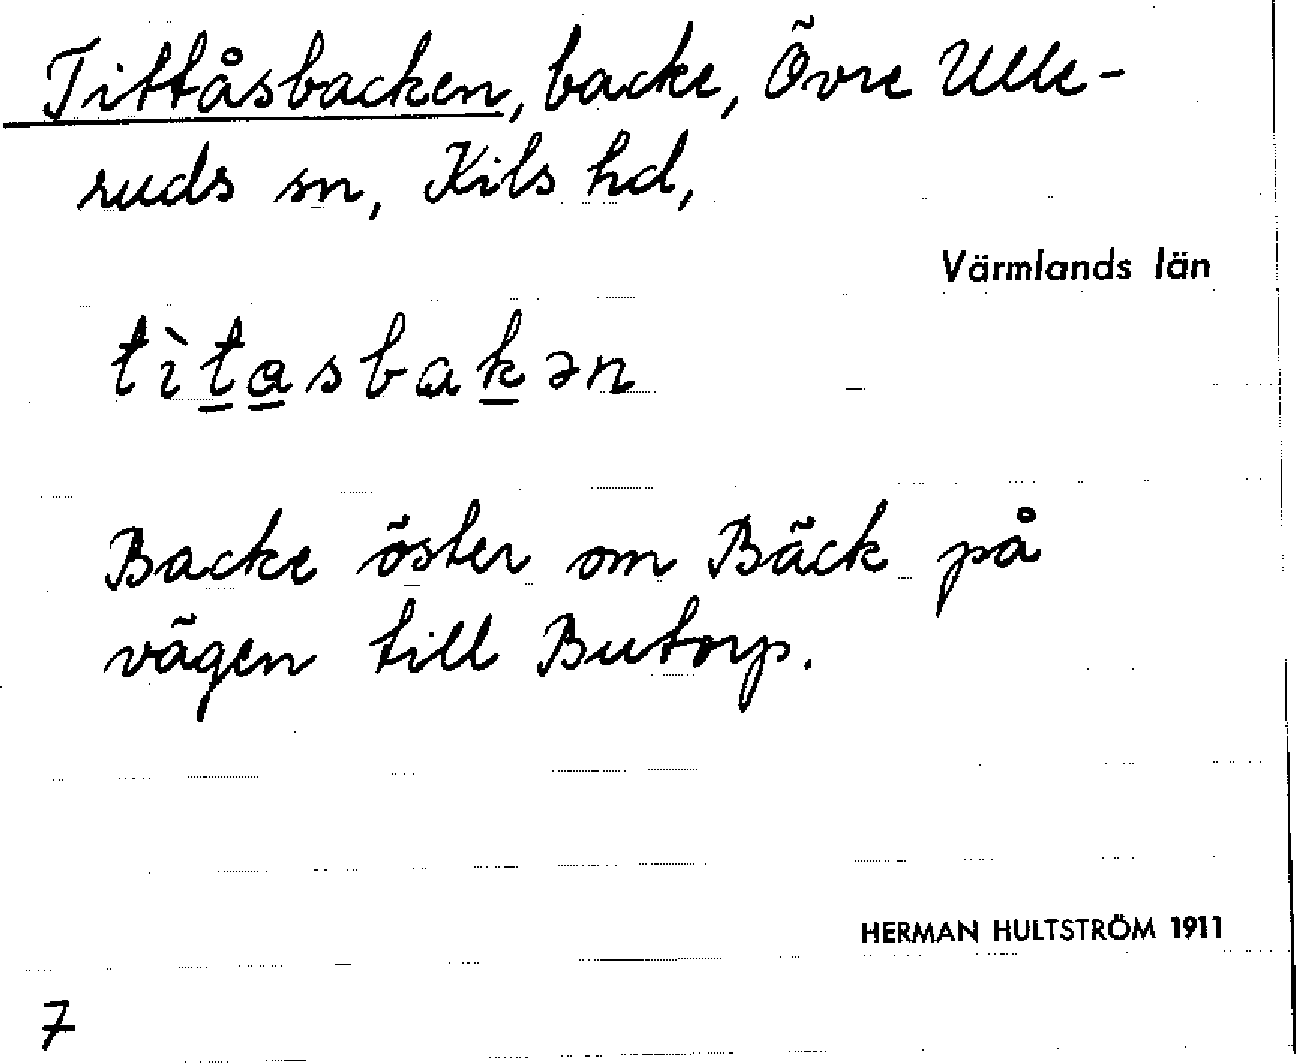 Tittåsbacken, backe, Övre Ulle-
ruds sn, Kils hd,
Värmlands län
tìt̲a̲sbak̲ən
Backe öster om Bäck på
vägen till Butorp.
HERMAN HULTSTRÖM 1911
7